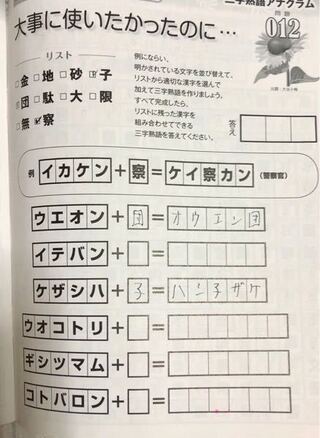 三字熟語アナグラム
大事に使いたかったのに…
問題
012
リスト
金 地 砂 子
団 駄 大 限
無 察
例にならい、
明かされている文字を並び替えて、
リストから適切な漢字を選んで
加えて三字熟語を作りましょう。
すべて完成したら、
リストに残った漢字を
組み合わせてできる
三字熟語を答えてください。
答え
例 イカケン + 察 = ケイ察カン (警察官)
ウエオン + 団 = オウエン団
イテバン + =
ケザシハ + 子 = ハシ子ザケ
ウオコトリ + =
ギシツマム + =
コトバロン + =